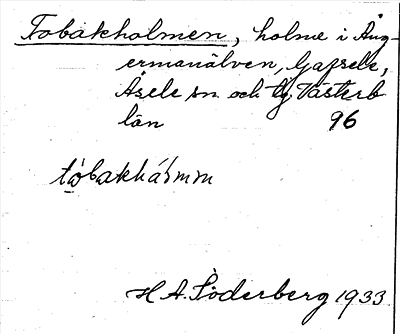 Tobakholmen, holme i Ång-
ermanälven, Gafsele,
Åsele sn. och tg. Västerb
län 96
tòbakhá̀mm
H A. Söderberg 1933